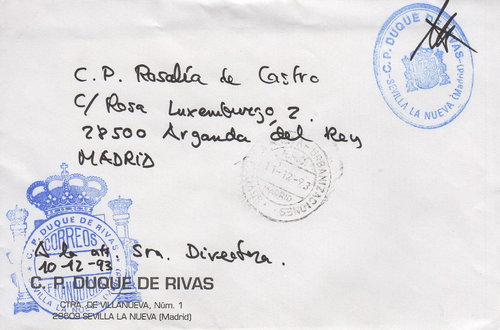 C.P. Rosalía de Castro
C/ Rosa Luxemburgo 2.
28500 Arganda del Rey
MADRID
C. P. DUQUE DE RIVAS
SEVILLA LA NUEVA (Madrid)
11-12-93
MADRID
C. P. DUQUE DE RIVAS
CORREOS
FRANQUICIA
SEVILLA LA NUEVA
A la att Sra. Directora.
10-12-93
C. P. DUQUE DE RIVAS
CTRA. DE VILLANUEVA, Núm. 1
28609 SEVILLA LA NUEVA (Madrid)